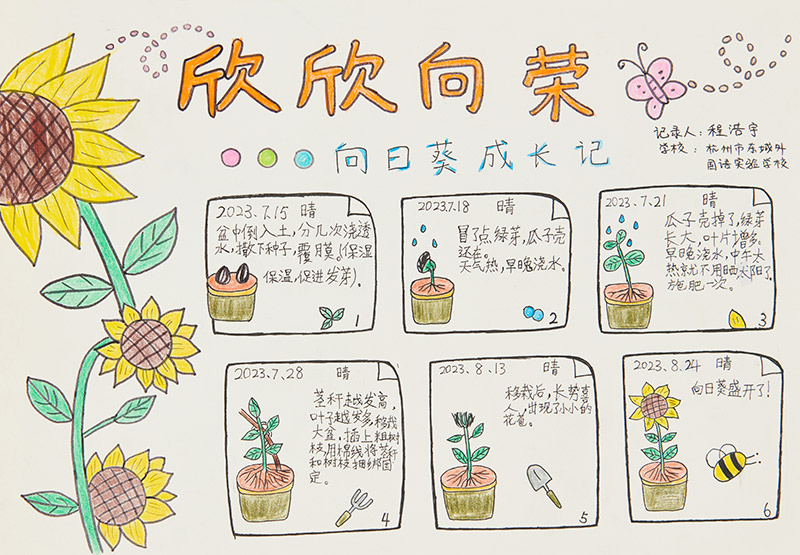 欣欣向荣
向日葵成长记
记录人：程浩宇
学校：杭州市东城外
国语实验学校
2023.7.15 晴
盆中倒入土，分几次浇透
水，撒下种子，覆膜。（保湿
保温，促进发芽）.
1
2023.7.18 晴
冒了点绿芽，瓜子壳
还在。
天气热，早晚浇水。
2
2023.7.21 晴
瓜子壳掉了，绿芽
长大，叶片增多。
早晚浇水，中午太
热就不用晒太阳了。
施肥一次。
3
2023.7.28 晴
茎秆越发高，
叶子越发多，移栽
大盆。插上粗树
枝，用棉线将茎秆
和树枝捆绑固
定。
4
2023.8.13 晴
移栽后，长势喜
人，出现了小小的
花苞。
5
2023.8.24 晴
向日葵盛开了！
6